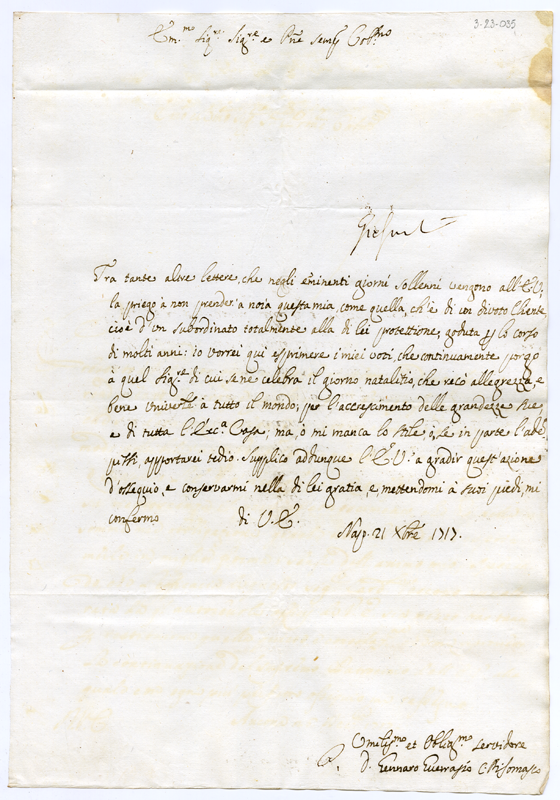 3-23-035
Em.mo Sig.r Sig.re e Pne semp Col.mo
Tra tante altre lettere, che negli eminenti giorni sollenni vengono all'E.V.
la priego à non prender à noia questa mia, come quella, ch'è di un divoto Cliente,
cioè d'un subordinato totalmente alla di lei protettione, goduta p lo corso
di molti anni: io vorrei qui esprimere i miei voti, che continuamente porgo
à quel Sig.re di cui se ne celebra il giorno natalitio, che recò allegrezza, e
bene à tutto il mondo; per l'accrescimento delle grandezze sue
e di tutta l'Ecc.a Casa; ma, ò mi manca lo stile, ò, se in parte
apportarei tedio. Supplico addunque l'E.V. à gradir quest'azione
d'ossequio, e conservarmi nella di lei gratia, e, mettendomi à suoi piedi, mi
confermo di V.E.
Nap. 21 Xbre 1717.
Umiliss.mo et Oblig.mo servidore
D. Gennaro C. R. Somasco